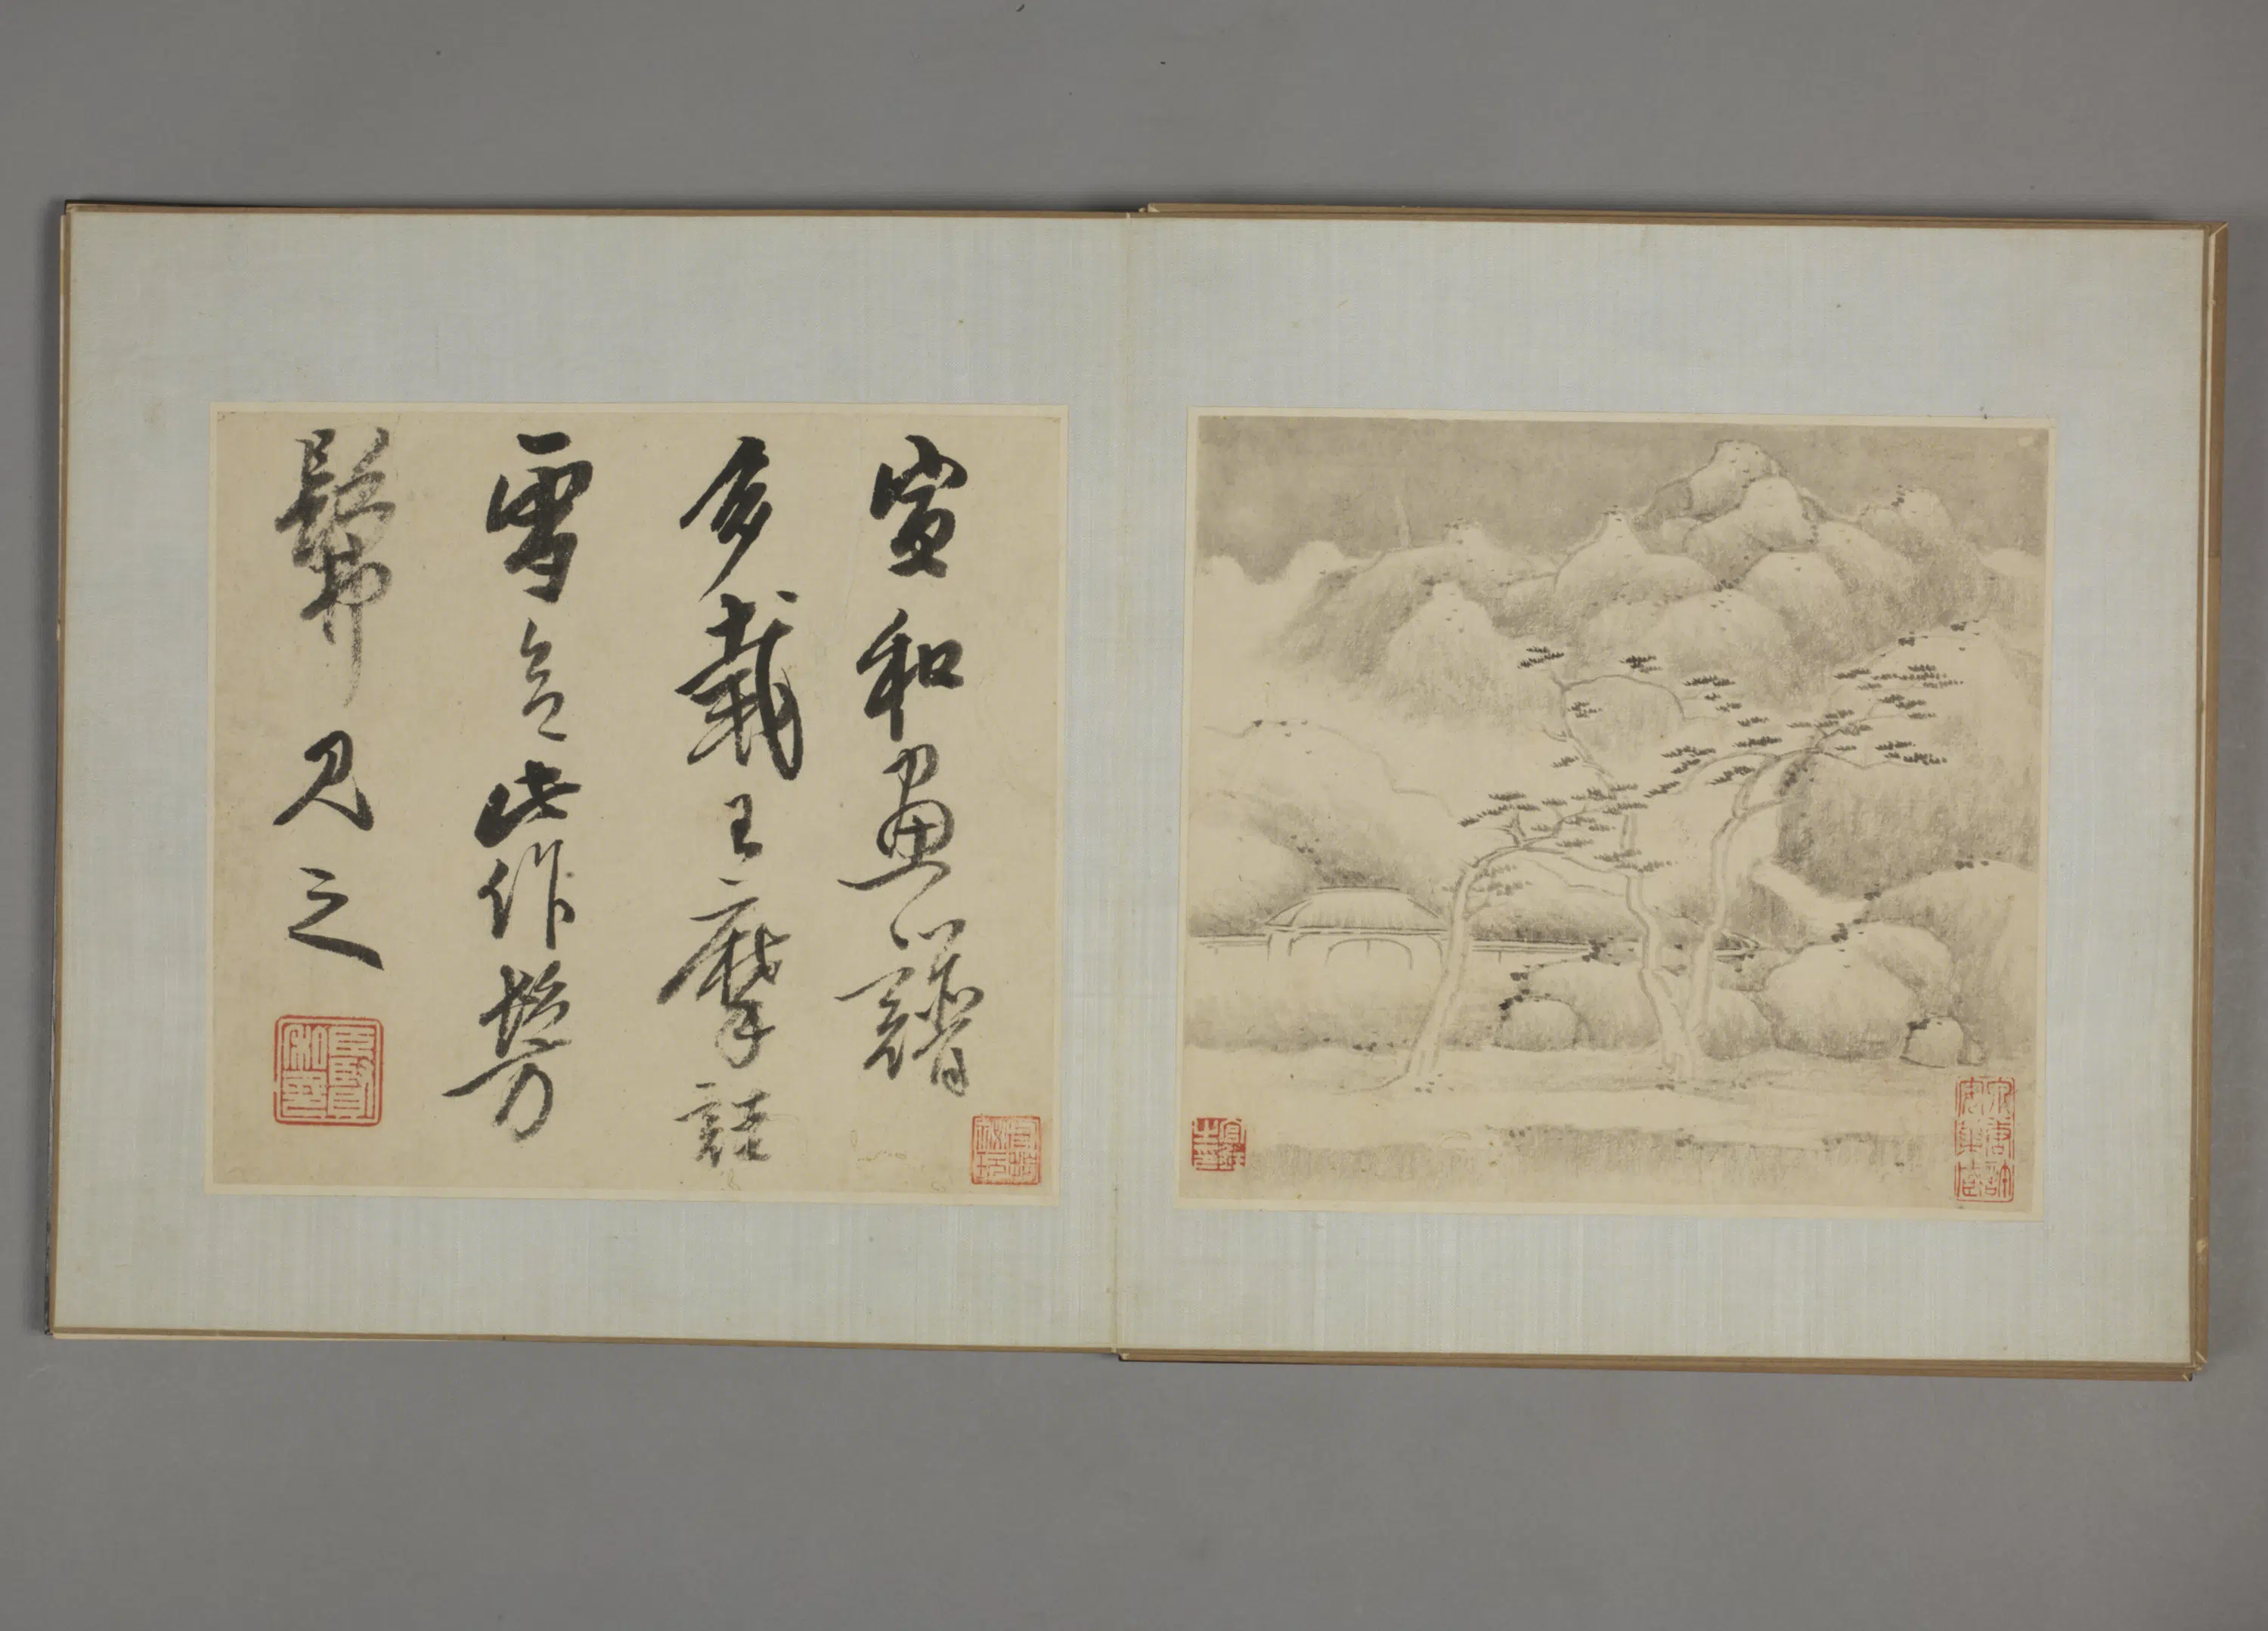 宣和畫譜
多載王摩詰
雪意此作髣
髴見之